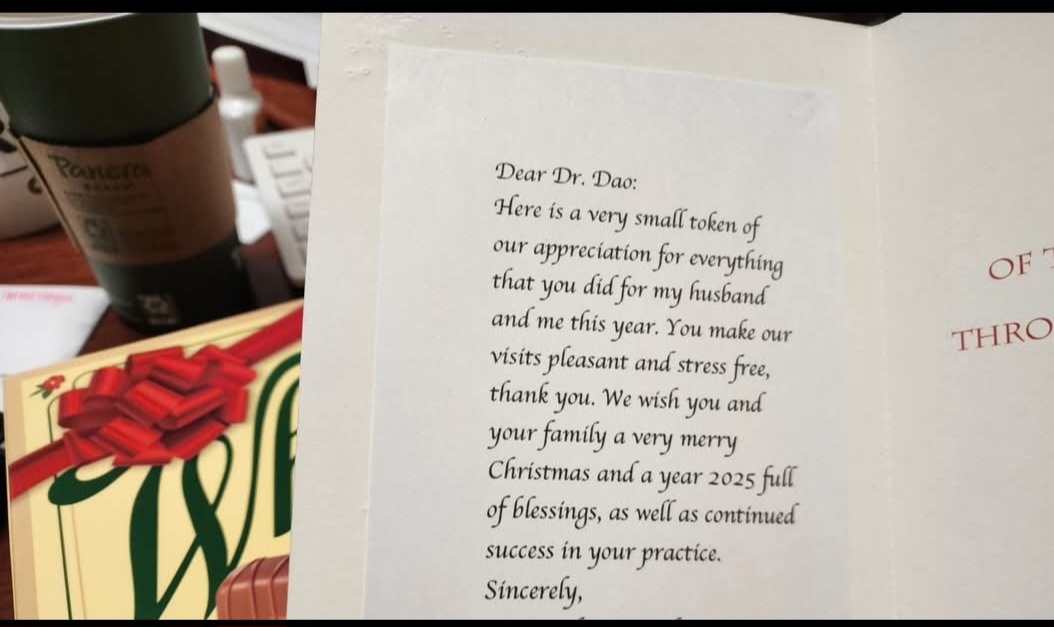 Panera
Dear Dr. Dao:
Here is a very small token of
our appreciation for everything
that you did for my husband
and me this year. You make our
visits pleasant and stress free,
thank you. We wish you and
your family a very merry
Christmas and a year 2025 full
of blessings, as well as continued
success in your practice.
Sincerely,
OF
THRO